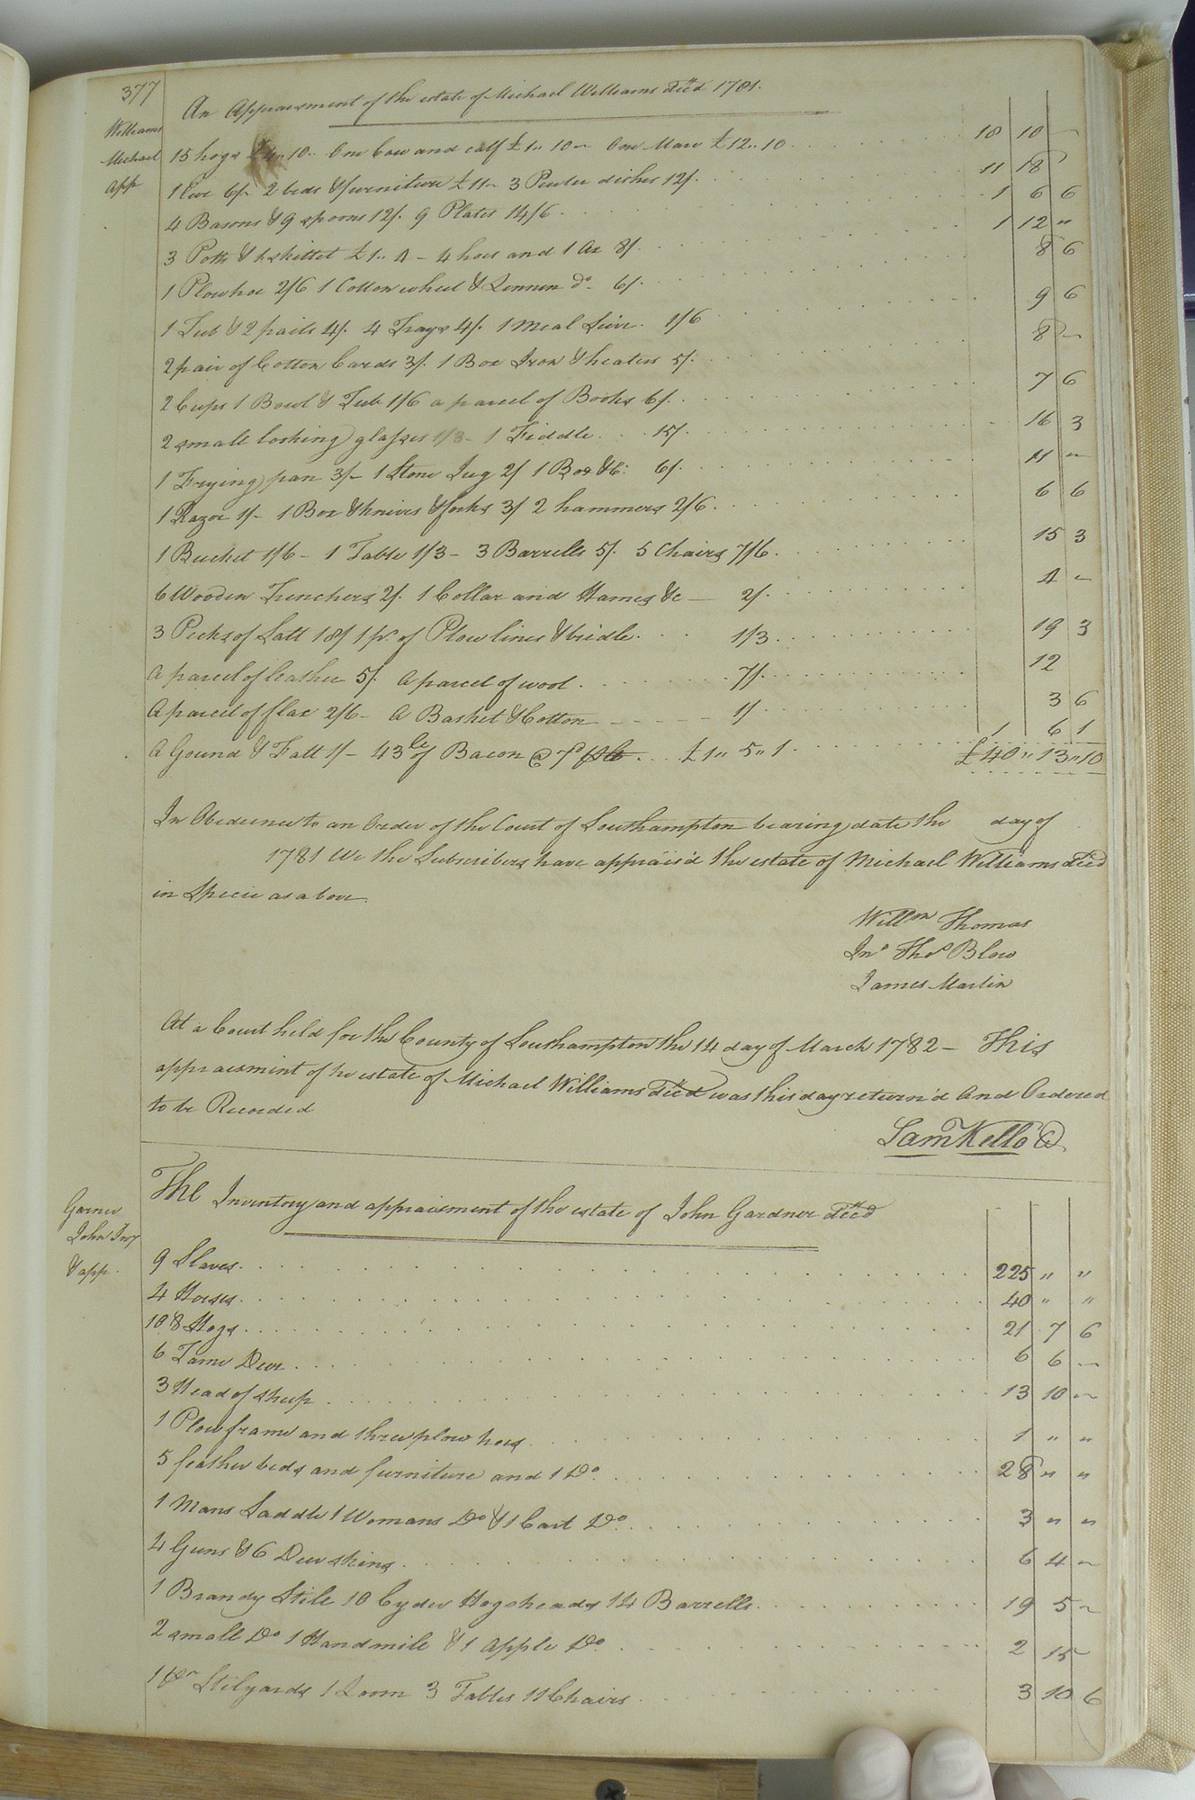 377
An Appraisment of the estate of Michael Williams dec'd 1781.
Williams
Michael
app
15 hogs 10.. One Cow and calf £1.. 10 ~ One Mare £12.. 10 18 10 ~
1 6/. 2 beds & furniture £11 ~ 3 Pewter dishes 12/. 11 18
4 Basons & 9 spoons 12/. 9 Plates 14/6 1 6 6
3 Potts & 1 skillet £1.. 4 - 4 hoes and 1 Ax 8/. 1 12 "
1 Plow hoe 2/6 1 Cotton wheel & Linnen do. 6/. 8 6
1 Tub & 2 pails 4/. 4 Trays 4/. 1 Meal Sive. 1/6 9 6
2 pair of Cotton Cards 3/. 1 Box Iron & heaters 5/. 8 ~
2 Cups 1 Bowl & Tub 1/6 a parcel of Books 6/. 7 6
2 small looking glasses 1/3 - 1 Fiddle 15/. 16 3
1 Frying pan 3/- 1 Stone Jug 2/ 1 Box &c: 6/. 11 ~
1 Razor 1/- 1 Box & knives & forks 3/ 2 hammers 2/6. 6 6
1 Bucket 1/6 - 1 Table 1/3 - 3 Barrells 5/. 5 Chairs 7/6. 15 3
6 Wooden Trenchers 2/. 1 Collar and Hames &c - 2/. 4 ~
3 Pecks of Salt 18/ 1 pr. of Plow lines & bridle. 1/3 19 3
A parcel of leather 5/. A parcel of wool. 7/. 12
A parcel of flax 2/6 - A Basket & Cotton 1/ 3 6
A Gound & Fatt 1/- 43 lb of Bacon @ 7d £1.. 5.. 1 1 6 1
£40 " 13 " 10
In Obedience to an Order of the Court of Southampton bearing date the day of
1781 We the Subscribers have apprais'd the estate of Michael Williams dec'd
in Specie as above.
Willm Thomas
Jno Thos Blow
James Martin
At a Court held for the County of Southampton the 14 day of March 1782 - This
appraisment of he estate of Michael Williams dec'd was this day return'd And Ordered
to be Recorded
Saml Kello
The Inventory and appraisement of the estate of John Gardner dec'd
Garner
John Invy
& app.
9 Slaves. 225 " "
4 Horses. 40 " "
108 Hogs 21 7 6
6 Tame Deer 6 6 ~
3 Head of sheep 13 10 ~
1 Plow frame and three plow hoes 1 " "
5 feather beds and furniture and 1 Do 28 " "
1 Mans Saddle 1 Womans Do & 1 Cart Do 3 " "
4 Guns & 6 Deer skins 6 4 ~
1 Brandy Still 10 Cyder Hogsheads 14 Barrells 19 5 ~
2 small Do 1 Handmile & 1 Apple Do 2 15
1 Pr Stilyards 1 Loom 3 Tables 11 Chairs 3 10 6